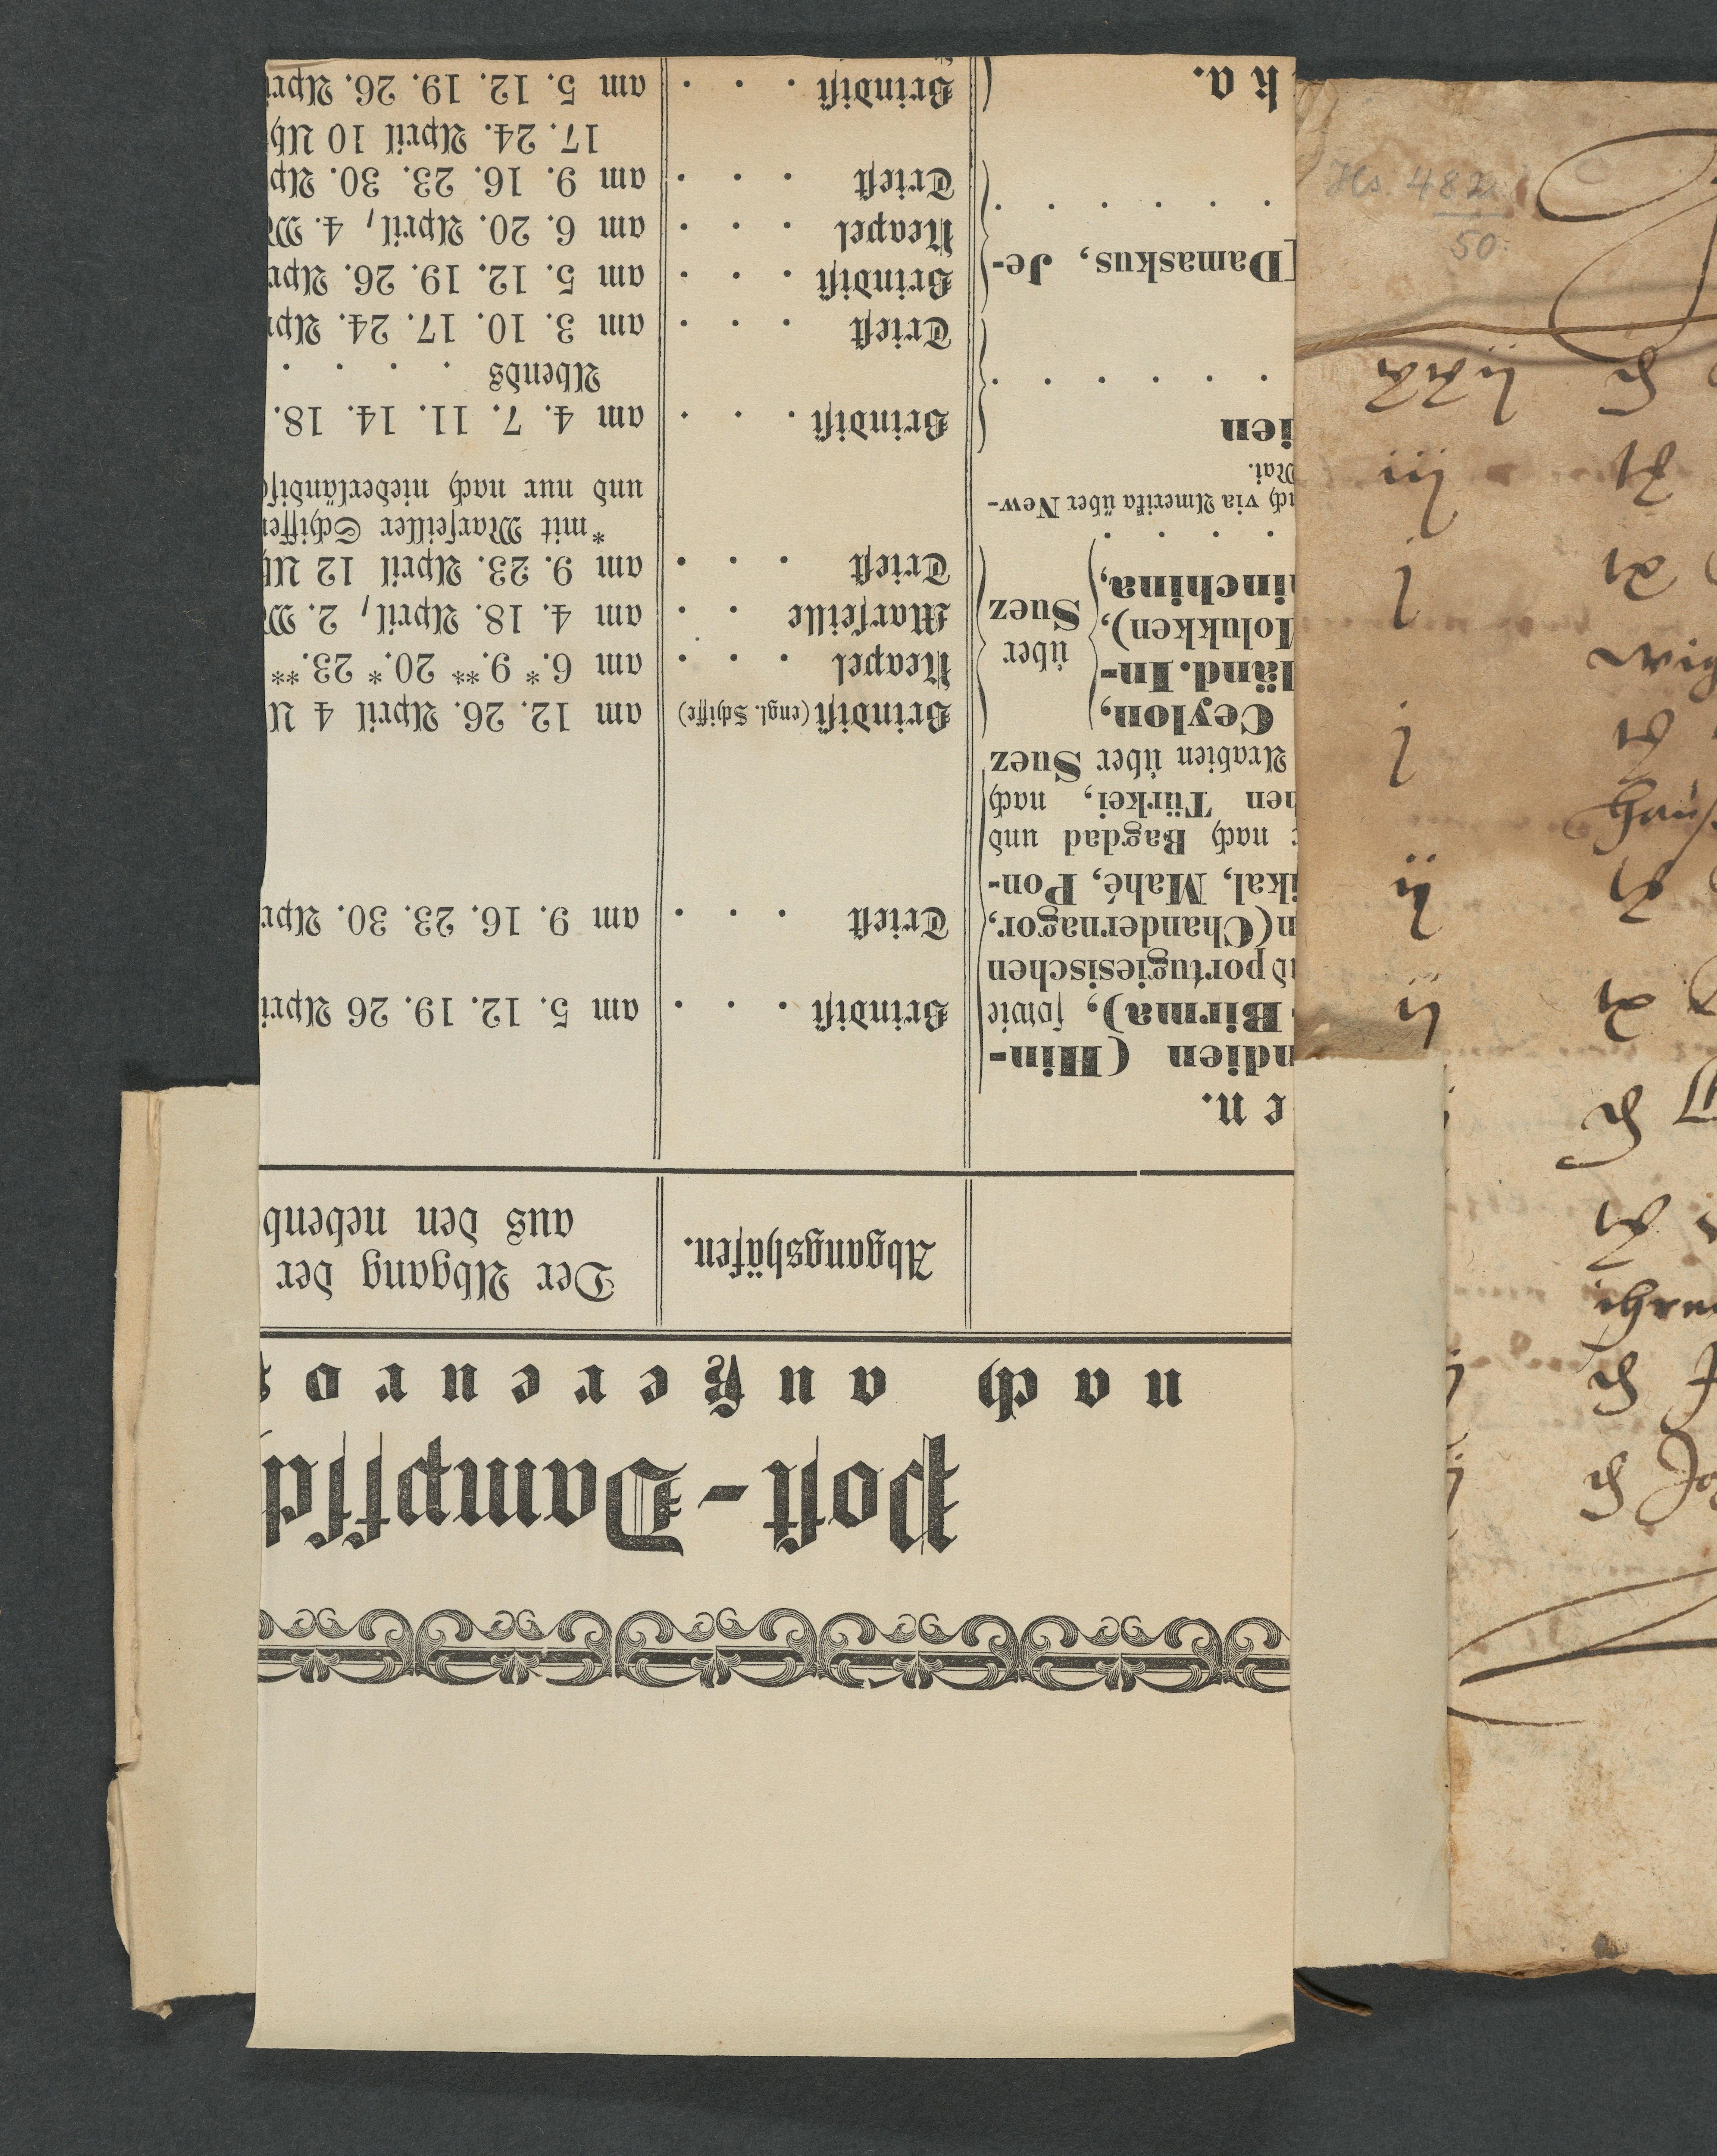 Post-Dampfsch
nach außereuro
Abgangshäfen.
Der Abgang der
aus den nebenb
en.
ndien (Hin-
Birma), sowie
d portugiesischen
n (Chandernagor,
ikal, Mahé, Pon-
nach Bagdad und
hen Türkei, nach
Arabien über Suez
Brindisi . . . am 5. 12. 19. 26 Apri
Triest . . . am 9. 16. 23. 30. Apr
Ceylon,
länd. In-
Molukken),
inchina,
über
Suez
Brindisi (engl. Schiffe) am 12. 26. April 4 U
Neapel . . . am 6.* 9.** 20.* 23.**
Marseille . . am 4. 18. April, 2. M
Triest . . . am 9. 23. April 12 Uh
*mit Marseiller Schiffen
und nur nach niederländisch
ch via Amerika über New-
Mai.
ien
Brindisi . . . am 4. 7. 11. 14. 18.
Abends . . . .
Triest . . . am 3. 10. 17. 24. Apr
[Damaskus, Je-
Brindisi . . . am 5. 12. 19. 26. Apr
Neapel . . . am 6. 20. April, 4. M
Triest . . . am 9. 16. 23. 30. Ap
17. 24. April 10 Uh
ka.
Brindisi . . . am 5. 12. 19. 26. Apri
Hs. 482
50
iij
j
wig
j
hauß
ij
ij
ihren